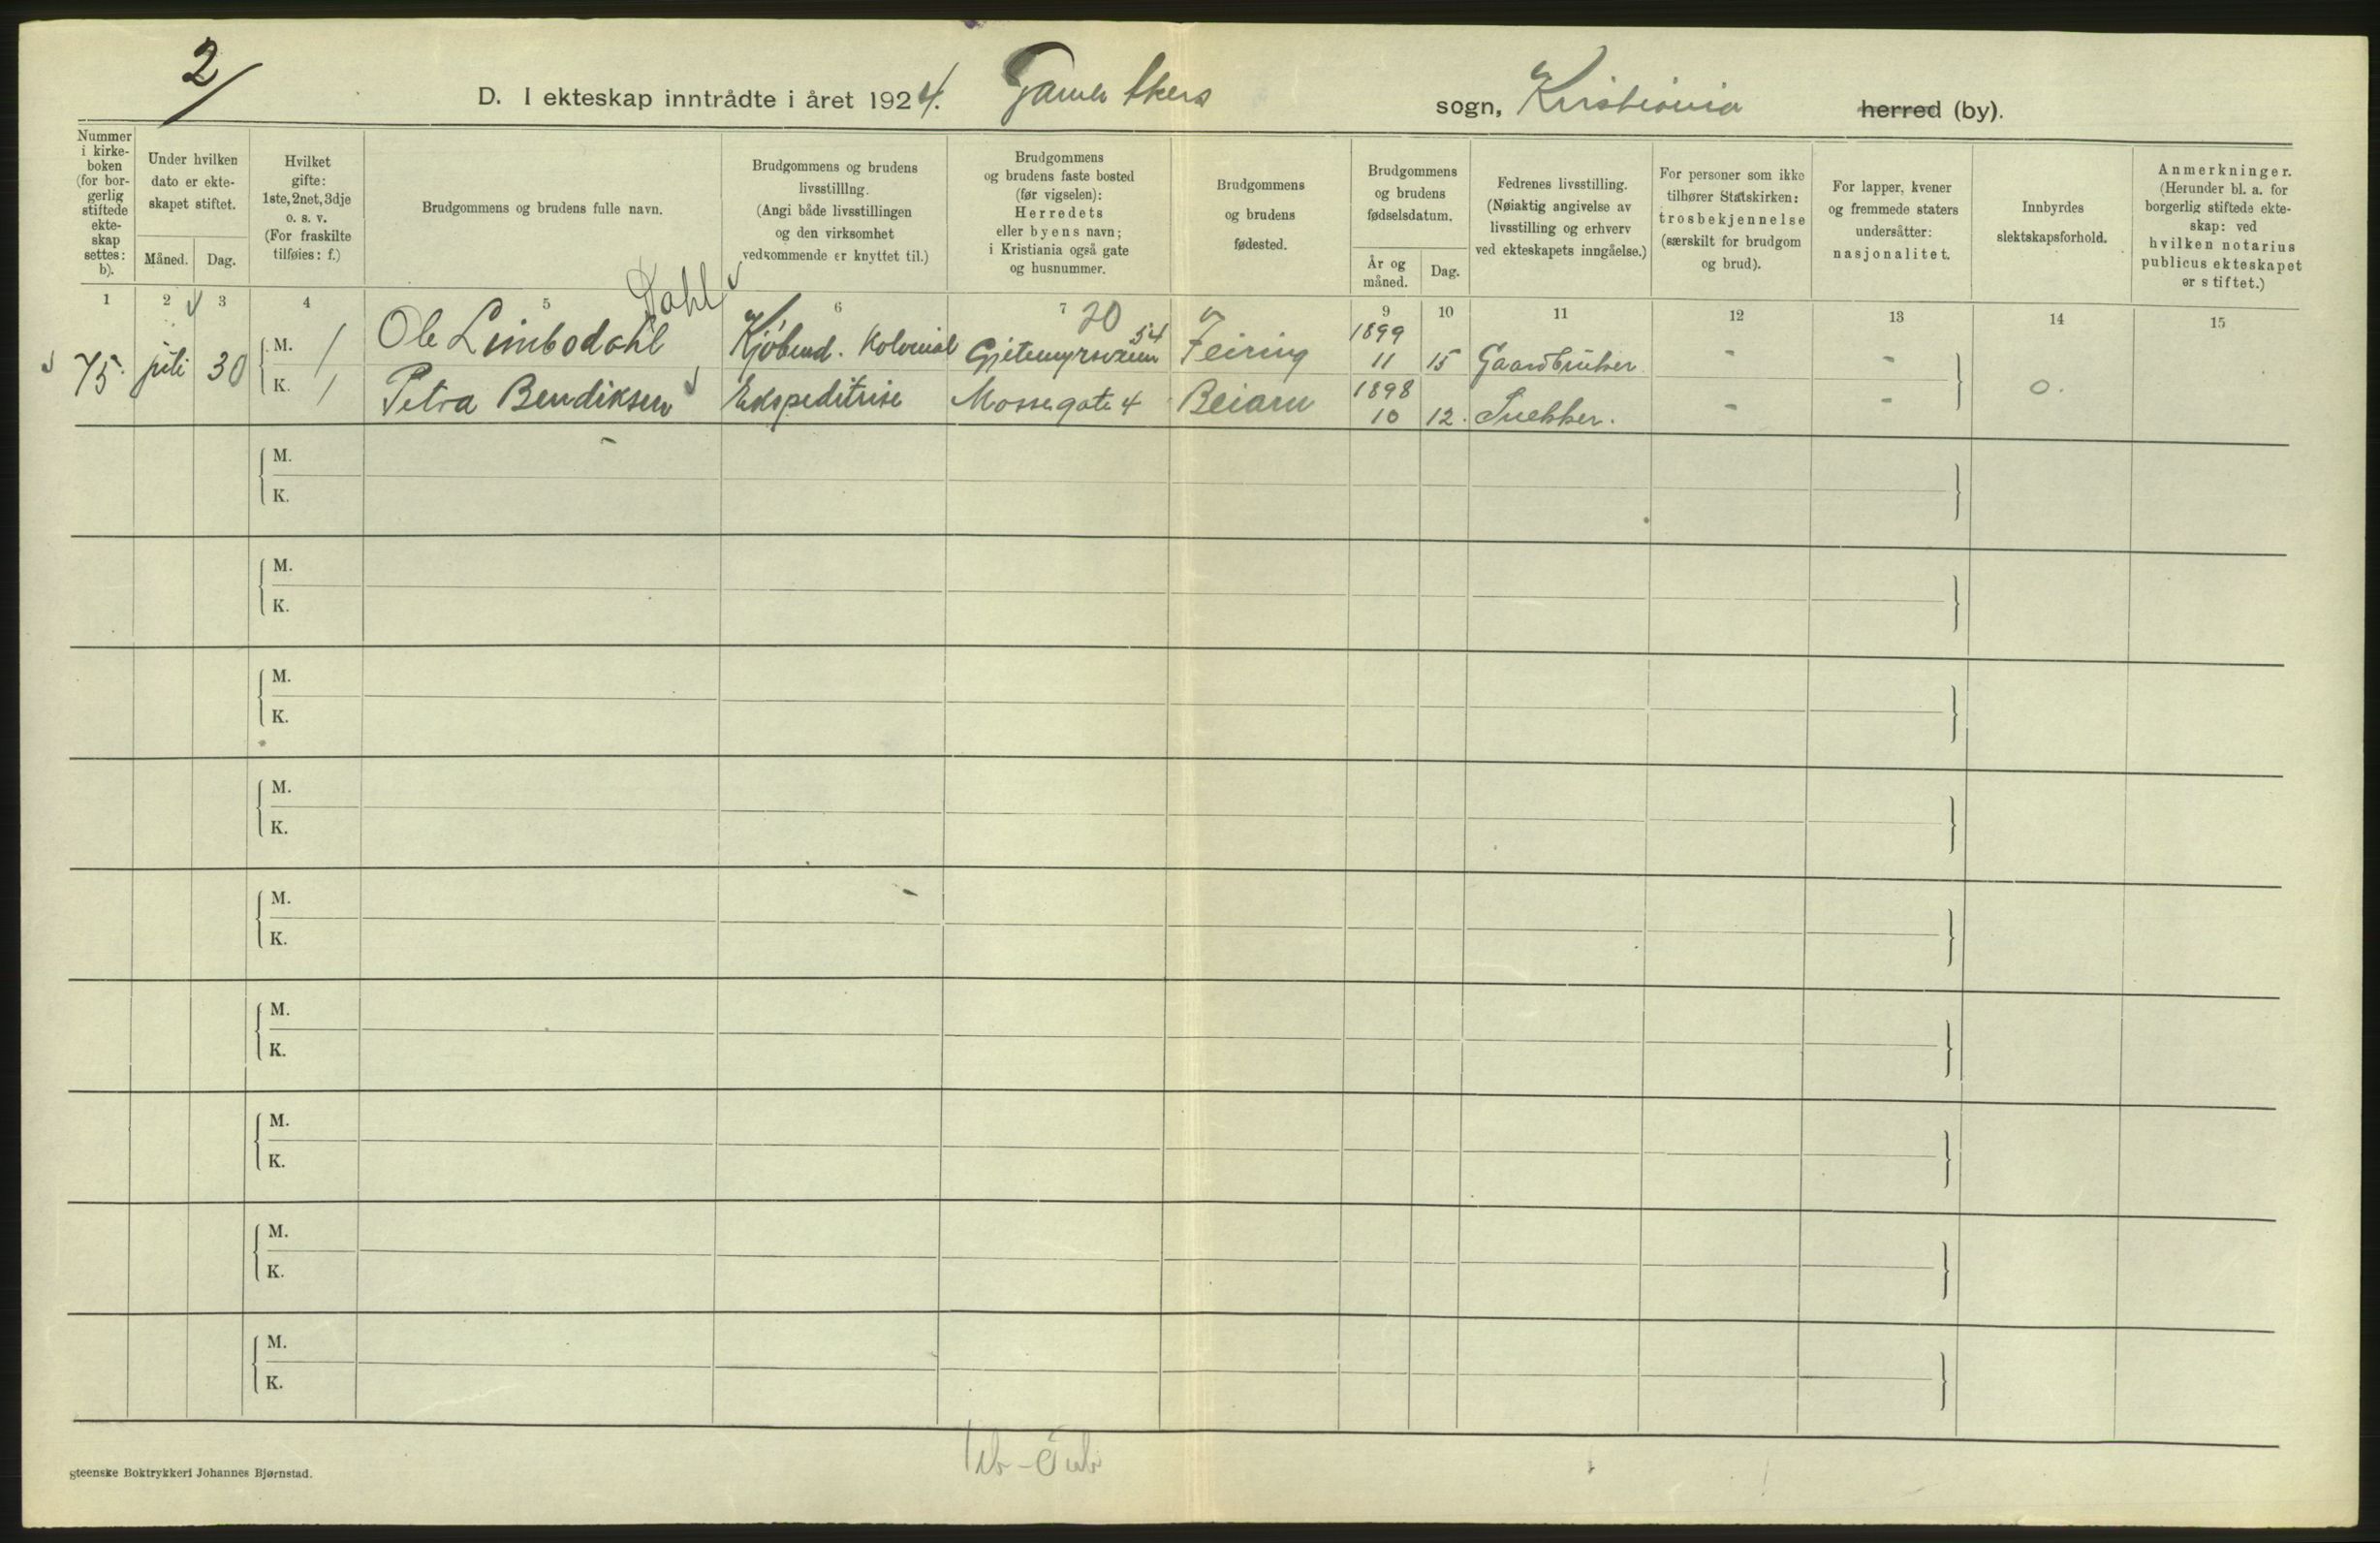 2/
D. I ekteskap inntrådte i året 1924. Gamle Akers sogn, Kristiania herred (by).
Nummer i kirke-boken (for bor-gerlig stiftede ekte-skap settes: b).
Under hvilken dato er ekte-skapet stiftet.
Måned. Dag.
Hvilket gifte: 1ste, 2net, 3dje o. s. v. (For fraskilte tilføies: f.)
Brudgommens og brudens fulle navn.
Brudgommens og brudens livsstilling. (Angi både livsstillingen og den virksomhet vedkommende er knyttet til.)
Brudgommens og brudens faste bosted (før vigselen): Herredets eller byens navn; i Kristiania også gate og husnummer.
Brudgommens og brudens fødested.
Brudgommens og brudens fødselsdatum.
År og måned. Dag.
Fedrenes livsstilling. (Nøiaktig angivelse av livsstilling og erhverv ved ekteskapets inngåelse.)
For personer som ikke tilhører Statskirken: trosbekjennelse (særskilt for brudgom og brud).
For lapper, kvener og fremmede staters undersåtter: nasjonalitet.
Innbyrdes slektskapsforhold.
Anmerkninger. (Herunder bl. a. for borgerlig stiftede ekte-skap: ved hvilken notarius publicus ekteskapet er stiftet.)
1 2 3 4 5 6 7 8 9 10 11 12 13 14 15
Dahl
20
75. juli 30 M. / Ole Limbodahl Kjøbmd. Kolonial Gjetemyrsveien 54 Feiring 1899 11 15 Gaardbruker - -
K. / Petra Bendiksen Ekspeditrise Mossegate 4 Beiarn 1898 10 12. Snekker. - - 0.
M.
K.
M.
K.
M.
K.
M.
K.
M.
K.
M.
K.
M.
K.
M.
K.
M.
K.
gteenske Boktrykkeri Johannes Bjørnstad.